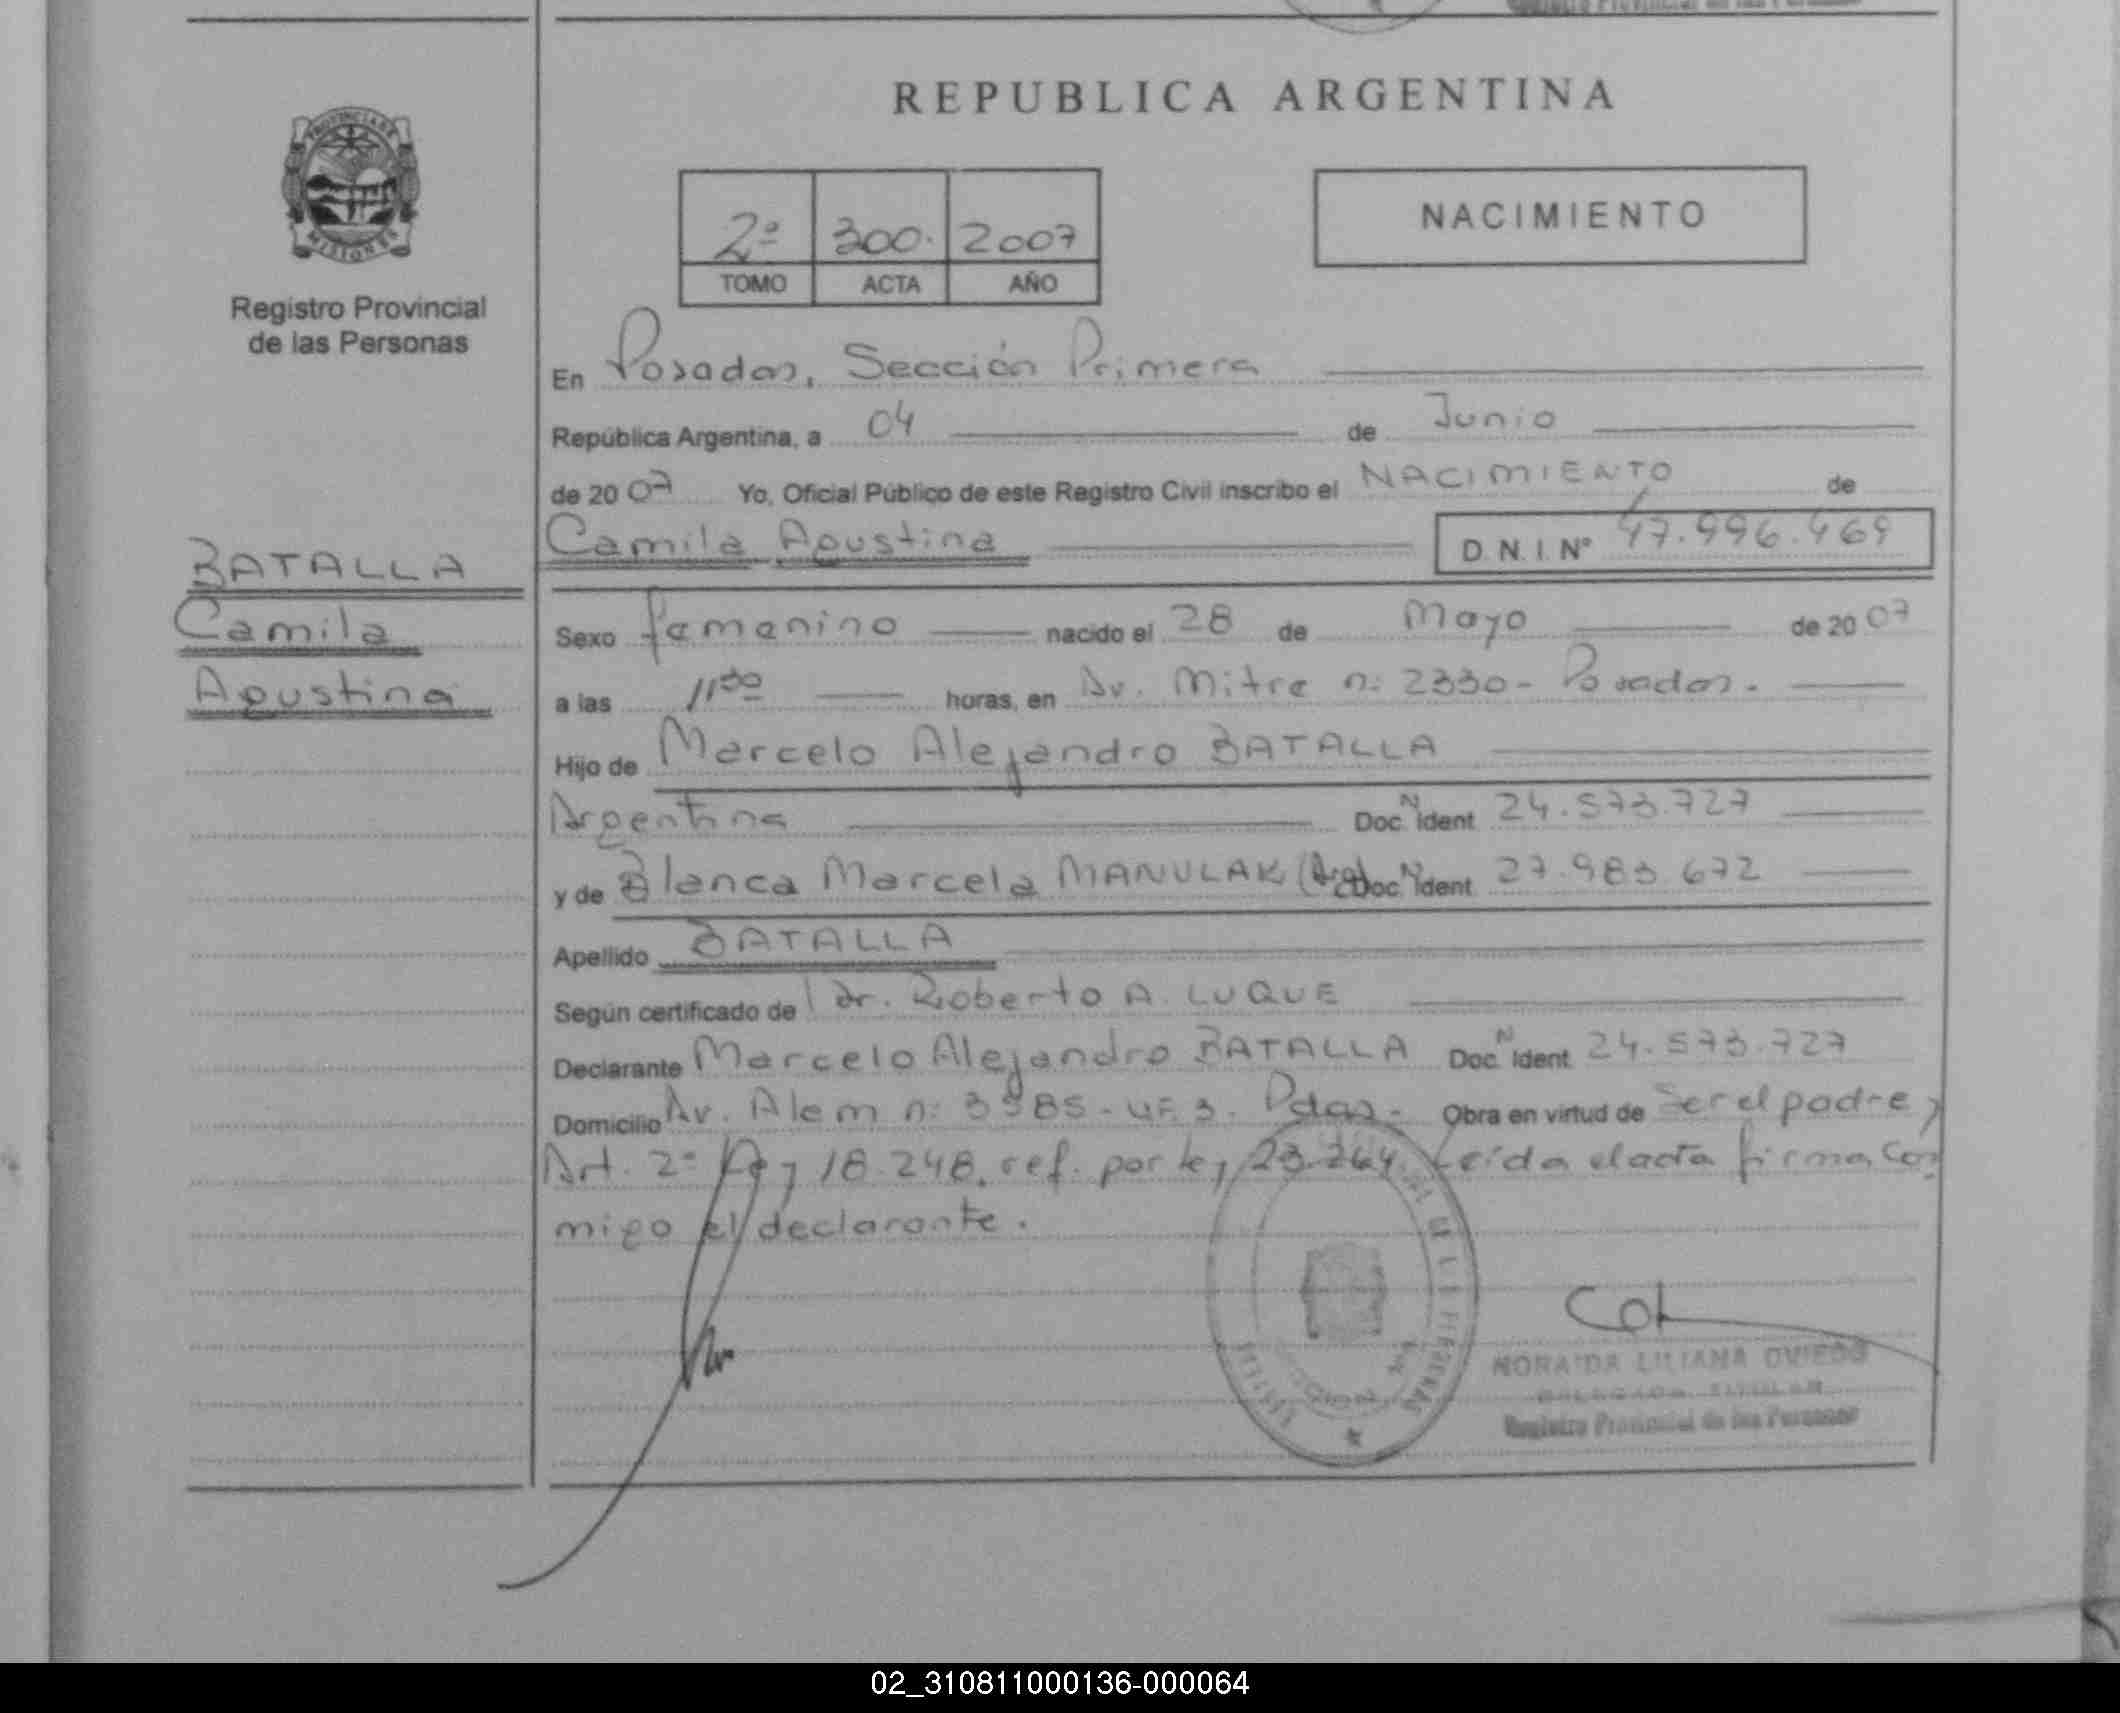 REPUBLICA ARGENTINA
PROVINCIA DE
MISIONES
Registro Provincial
de las Personas
2º 300. 2007
TOMO ACTA AÑO
NACIMIENTO
En Posadas, Sección Primera
República Argentina, a 04 de Junio
de 2007 Yo, Oficial Público de este Registro Civil inscribo el NACIMIENTO de
Camila Agustina D.N.I. Nº 47.996.469
BATALLA
Camila
Agustina
Sexo femenino nacido el 28 de Mayo de 2007
a las 11 30 horas, en Av. Mitre n: 2330 - Posadas.
Hijo de Marcelo Alejandro BATALLA
Argentina Doc. N Ident. 24.573.727
y de Blanca Marcela MANULAK (Arg) Doc. N Ident. 27.983.672
Apellido BATALLA
Según certificado de Dr. Roberto A. LUQUE
Declarante Marcelo Alejandro BATALLA Doc. N Ident. 24.573.727
Domicilio Av. Alem n: Pdas. Obra en virtud de Ser el padre y
Art. 2º ley 18.248. ref. por ley 23.264. Leída el acta firma con
migo el declarante.
NORAIDA LILIANA OVIEDO
DELEGADA TITULAR
Registro Provincial de las Personas
02_310811000136-000064